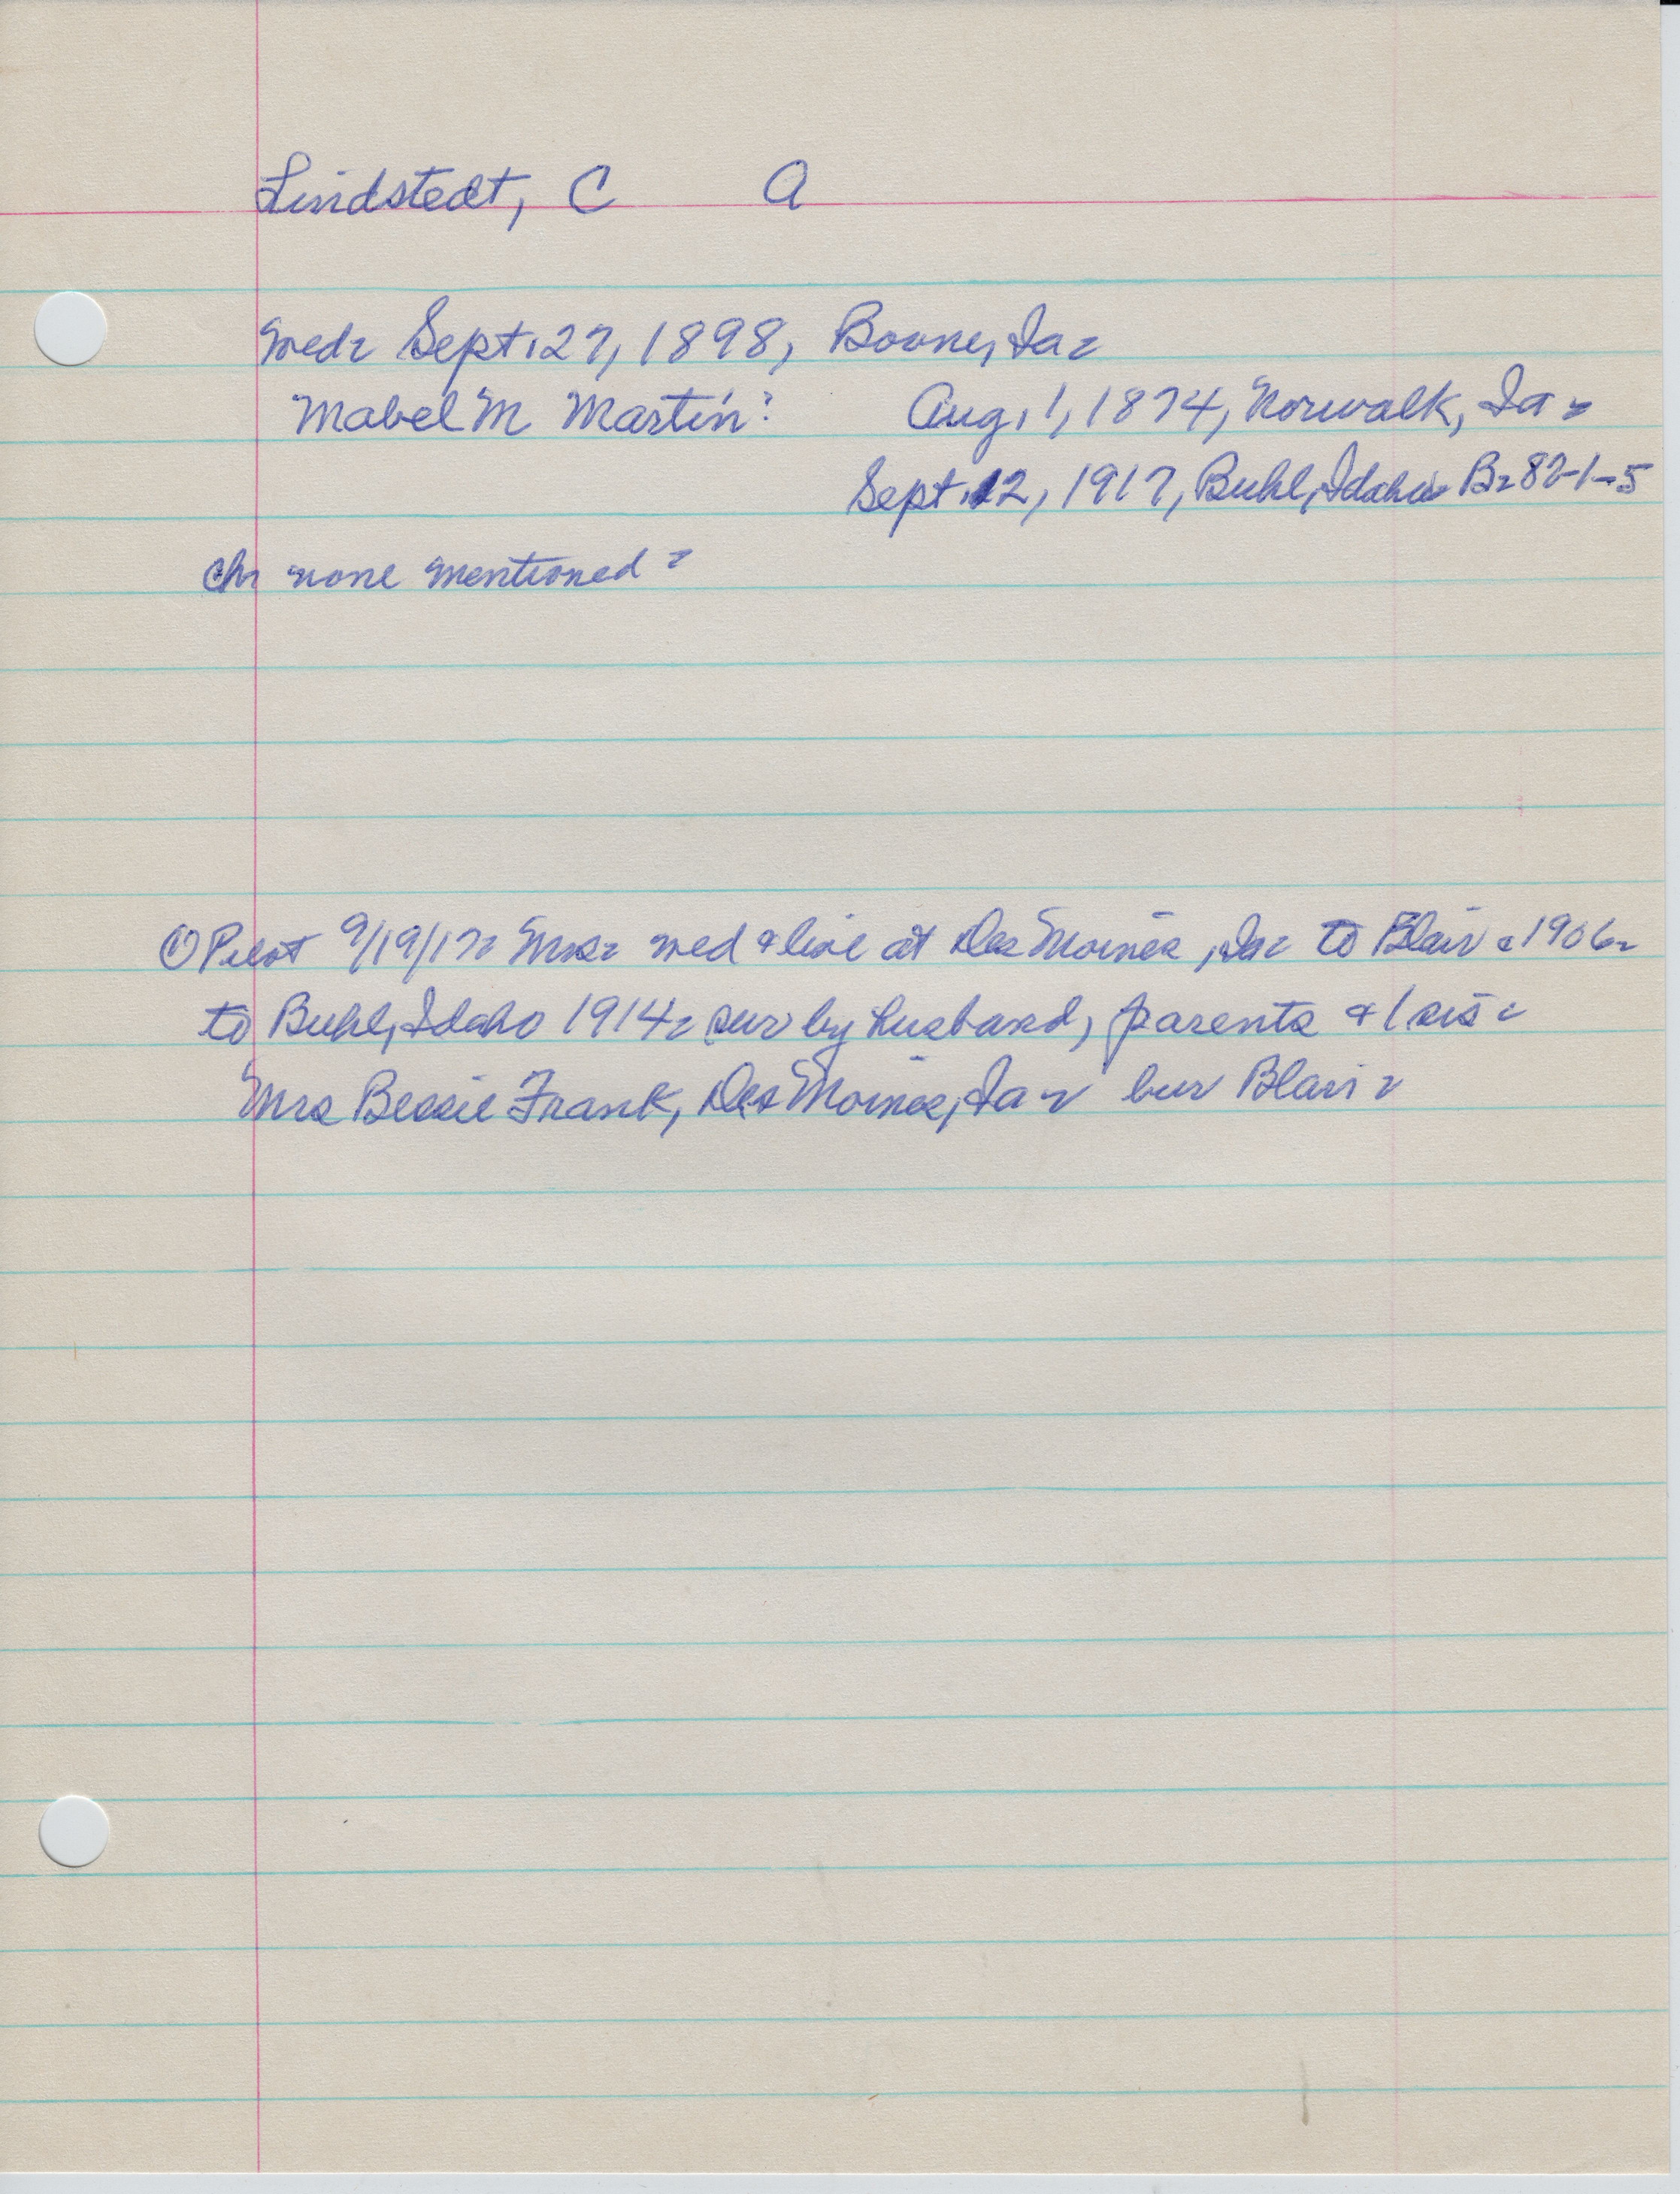 Lindstedt, C A
Wed: Sept. 27, 1898, Boone, Ia:
Mabel M Martin: Aug. 1, 1874, Norwalk, Ia:
Sept. 12, 1917, Buhl, Idaho: B: 82-1-5
Ch: none mentioned:
① Pilot 9/19/17: Mrs: wed & live at Des Moines, Ia: to Blair c1906:
to Buhl, Idaho 1914: sur by husband, parents & 1 sis:
Mrs Bessie Frank, Des Moines, Ia: bur Blair: